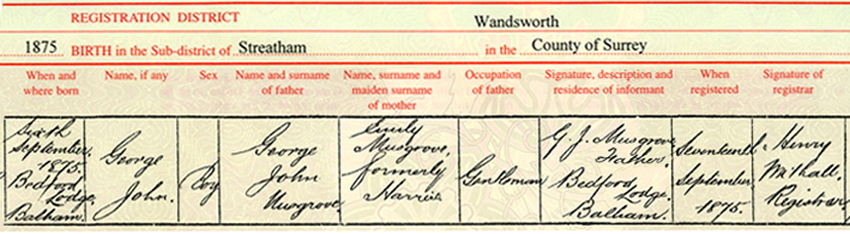 REGISTRATION DISTRICT Wandsworth
1875 BIRTH in the Sub-district of Streatham in the County of Surrey
When and where born
Name, if any
Sex
Name and surname of father
Name, surname and maiden surname of mother
Occupation of father
Signature, description and residence of informant
When registered
Signature of registrar
Sixth
September
1875.
Bedford
Lodge,
Balham.
George
John.
Boy
George
John
Musgrove.
Emily
Musgrove,
formerly
Gentleman
G. J. Musgrove
Father.
Bedford
Lodge.
Balham.
Seventeenth
September
1875.
Henry
Registrar